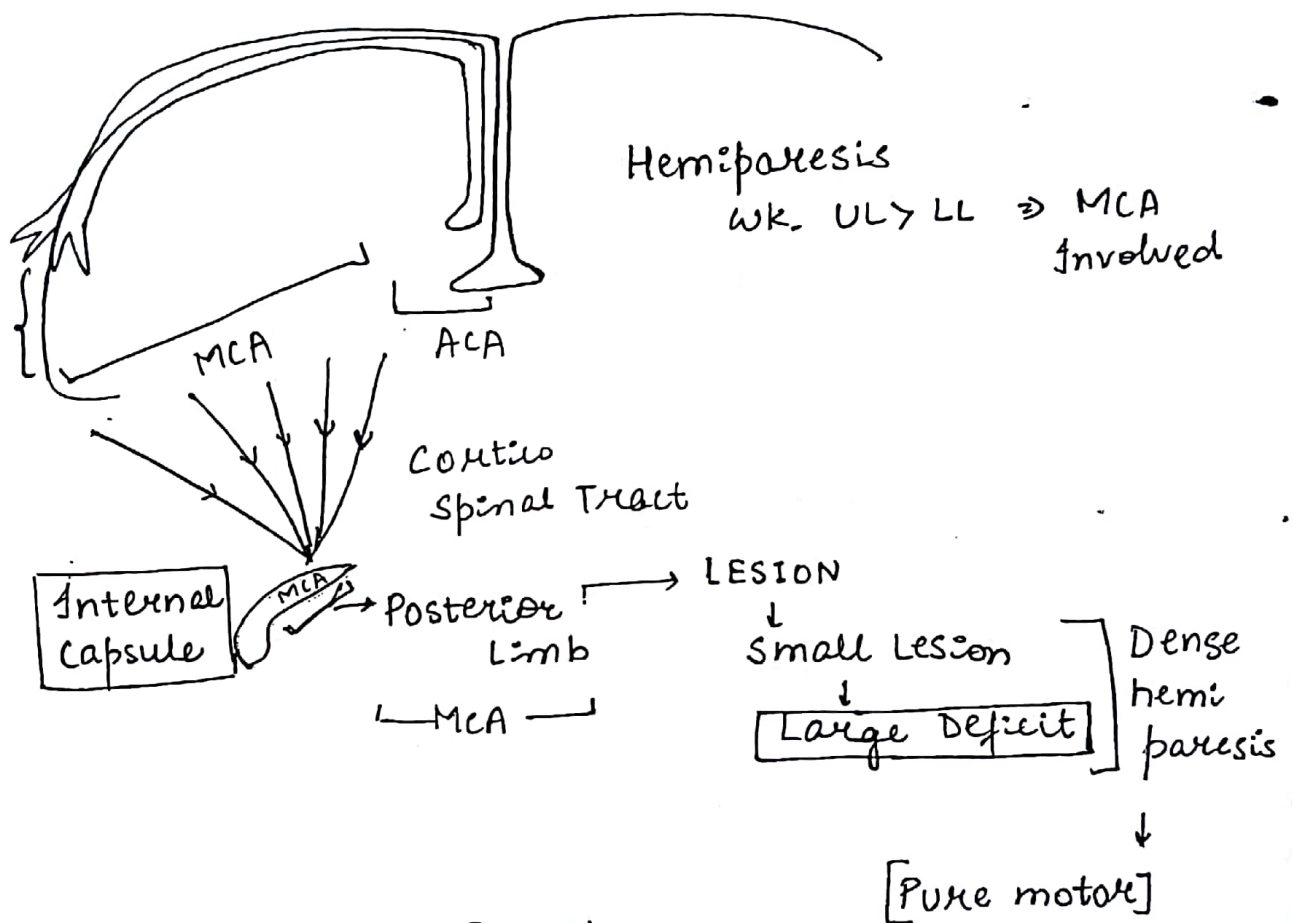 Hemiparesis
wk. UL > LL ⇒ MCA
Involved
MCA
ACA
Cortico
Spinal Tract
Internal
Capsule
MCA
→ Posterior
Limb
MCA
→ LESION
↓
Small Lesion
↓
Large Deficit
Dense
hemi
paresis
↓
[Pure motor]